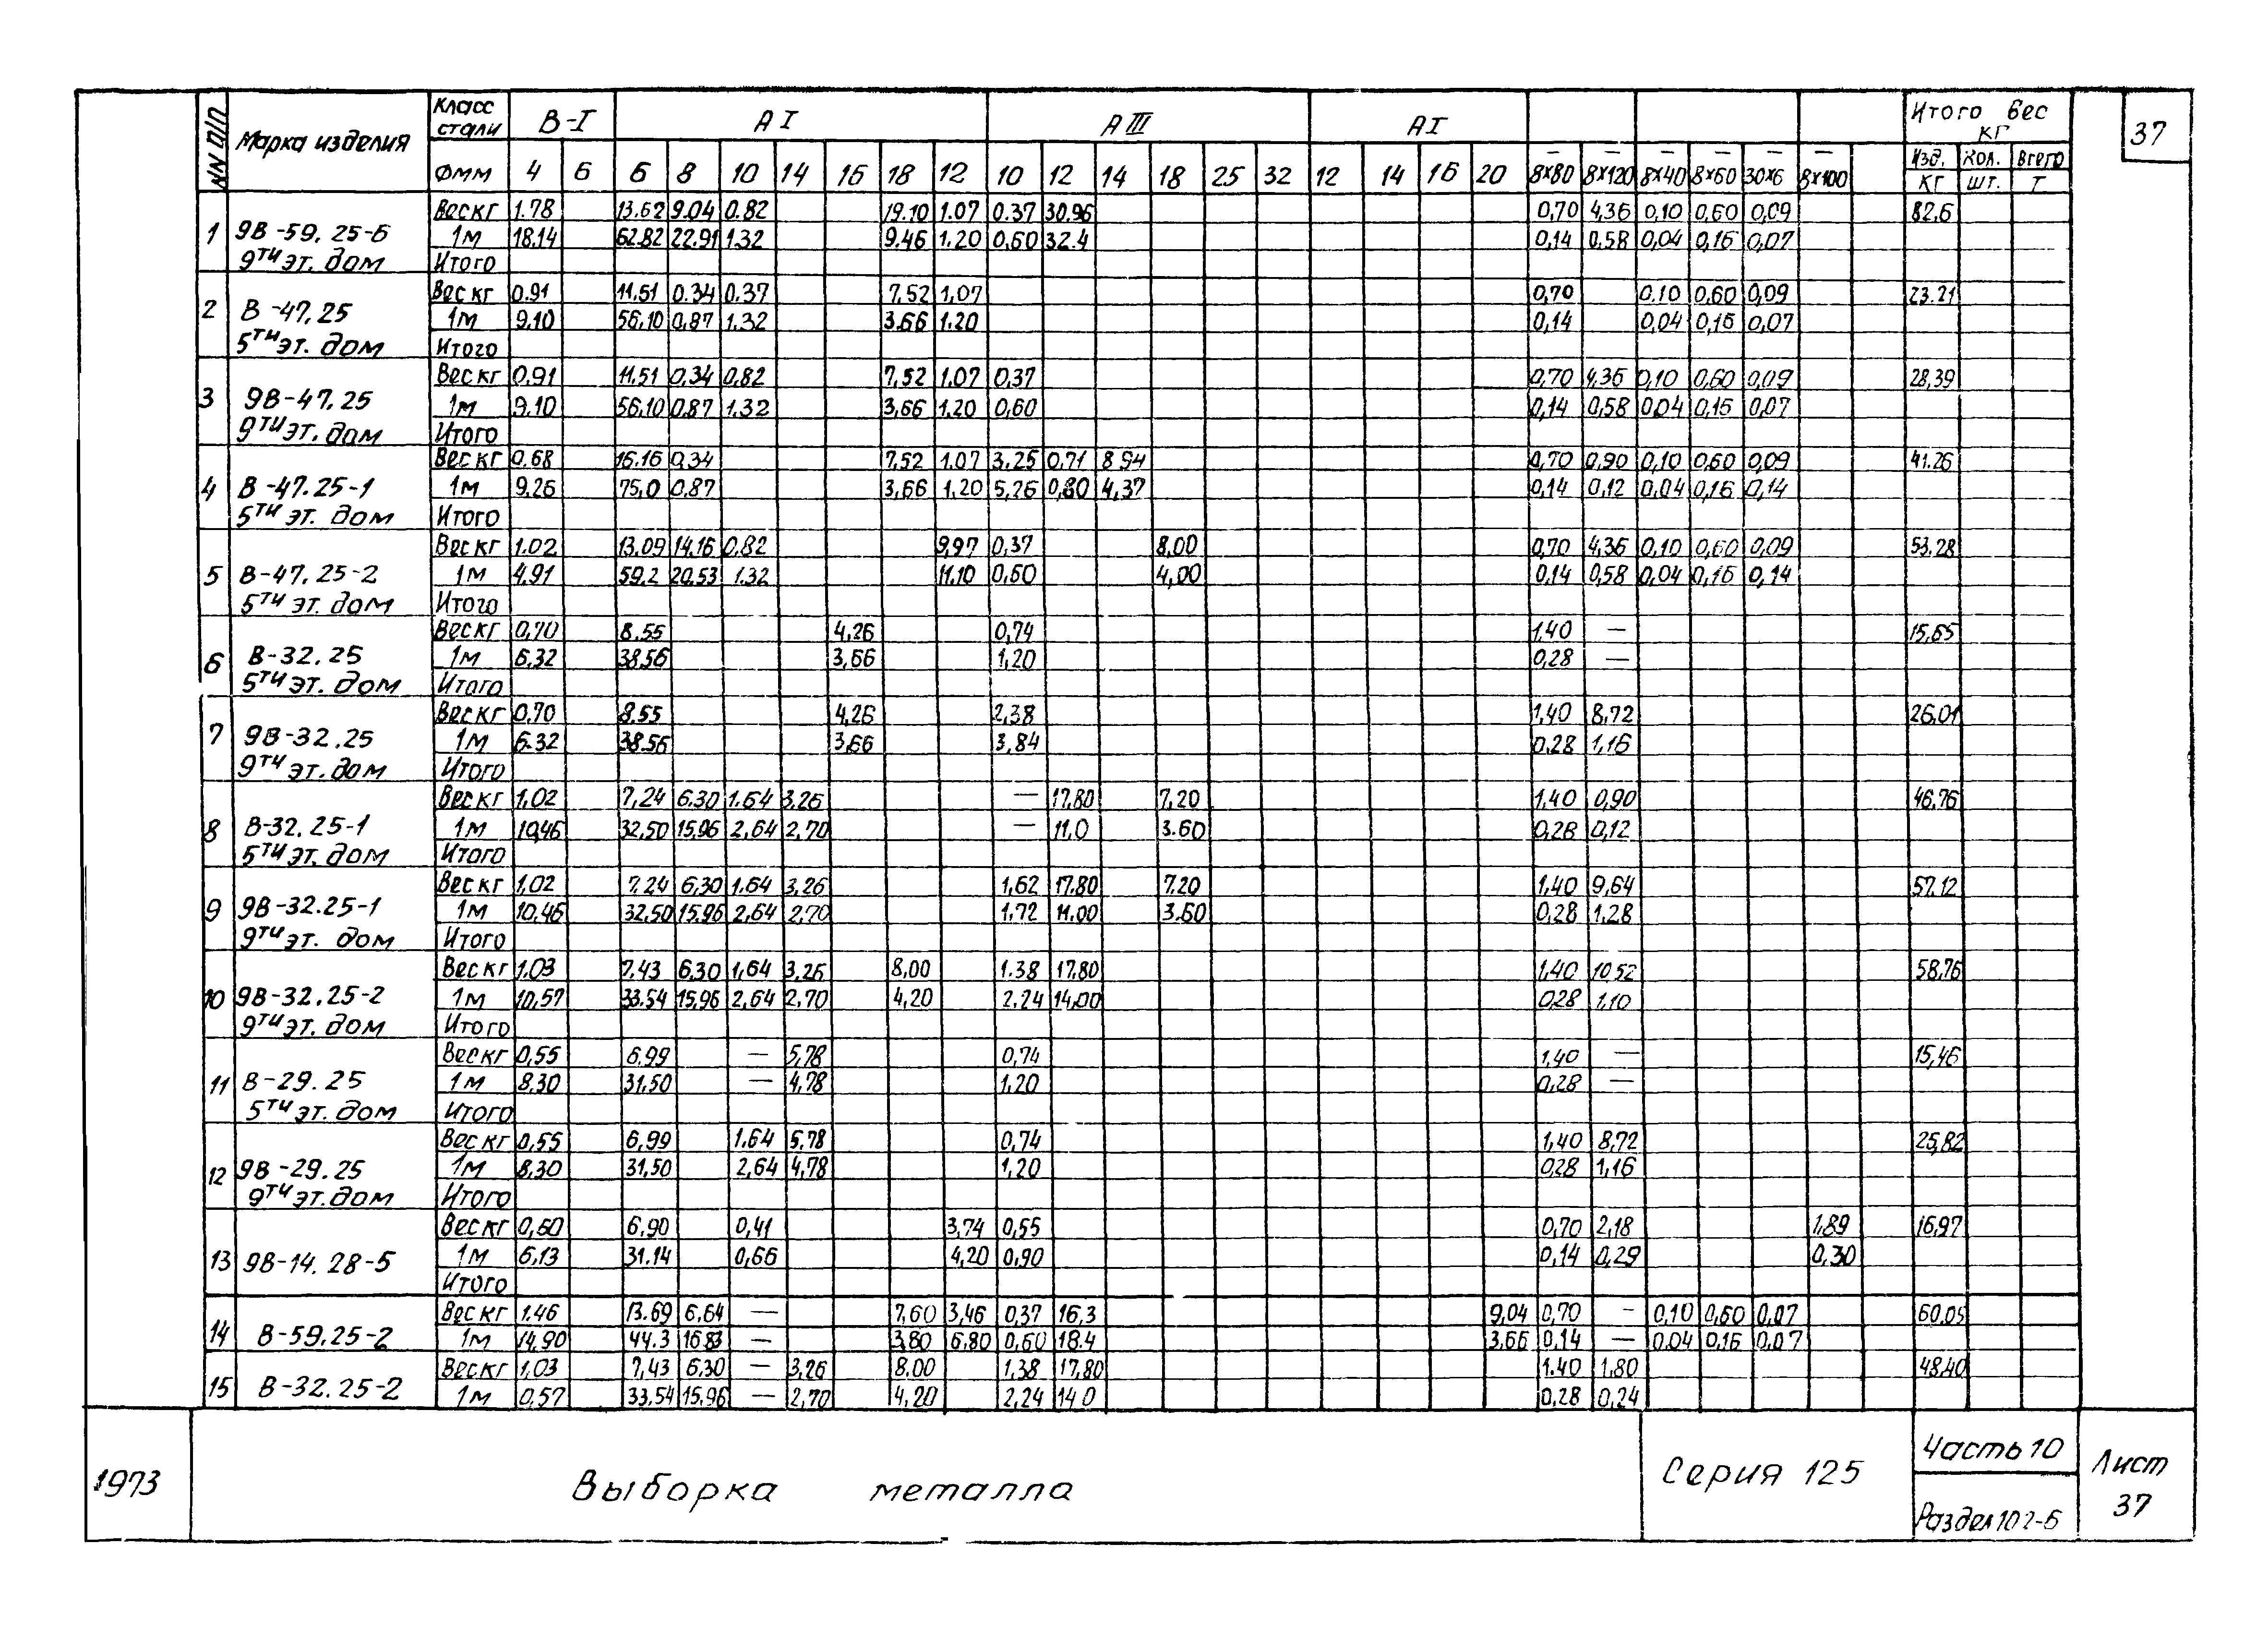 37
NN п/п Марка изделия Класс стали В-I А I А III А I Итого вес кг
Фмм 4 6 6 8 10 14 16 18 12 10 12 14 18 25 32 12 14 16 20 8×80 8×120 8×40 8×60 30×6 8×100 Изд. кг Кол. шт. Всего т
1 9В-59.25-6 9ти эт. дом
Вес кг 1.78 13.62 9.04 0.82 19.10 1.07 0.37 30.96 0,70 4,36 0,10 0,60 0,09 82,6
1м 18.14 62.82 22.91 1.32 9.46 1.20 0,60 32.4 0,14 0,58 0,04 0,16 0,07
Итого
2 В-47,25 5ти эт. дом
Вес кг 0.91 11.51 0.34 0.37 7.52 1,07 0,70 0.10 0,60 0,09 23.21
1м 9.10 56.10 0,87 1.32 3.66 1.20 0,14 0,04 0,16 0,07
Итого
3 9В-47.25 9ти эт. дом
Вес кг 0,91 11.51 0,34 0,82 7,52 1.07 0,37 0,70 4,36 0,10 0,60 0,09 28,39
1м 9.10 56,10 0,87 1.32 3,66 1,20 0,60 0,14 0,58 0,04 0,16 0,07
Итого
4 В-47.25-1 5ти эт. дом
Вес кг 0.68 16.16 0,34 7,52 1.07 3.25 0,71 8.94 0,70 0,90 0,10 0,60 0,09 41.26
1м 9,26 75,0 0,87 3,66 1,20 5,26 0,80 4,37 0,14 0,12 0,04 0,16 0,14
Итого
5 В-47,25-2 5ти эт. дом
Вес кг 1.02 13.09 14.16 0,82 9,97 0,37 8,00 0,70 4,36 0,10 0,60 0,09 53,28
1м 4,91 59.2 20.53 1.32 11.10 0,60 4,00 0,14 0,58 0,04 0,16 0,14
Итого
6 В-32,25 5ти эт. дом
Вес кг 0,70 8.55 4,26 0,74 1,40 — 15,65
1м 6.32 38.56 3,66 1,20 0,28 —
Итого
7 9В-32.25 9ти эт. дом
Вес кг 0.70 8.55 4,26 2,38 1,40 8,72 26,01
1м 6.32 38.56 3,66 3,84 0,28 1,16
Итого
8 В-32,25-1 5ти эт. дом
Вес кг 1,02 7,24 6.30 1.64 3.26 — 17,80 7,20 1,40 0,90 46,76
1м 10,46 32,50 15,96 2,64 2,70 — 11,0 3.60 0,28 0,12
Итого
9 9В-32.25-1 9ти эт. дом
Вес кг 1,02 7,24 6,30 1,64 3,26 1,62 17,80 7.20 1,40 9,64 57,12
1м 10,46 32,50 15,96 2,64 2,70 1,72 11,00 3.60 0,28 1,28
Итого
10 9В-32,25-2 9ти эт. дом
Вес кг 1.03 7,43 6,30 1,64 3,26 8,00 1.38 17,80 1,40 10,52 58,76
1м 10,57 33.54 15,96 2,64 2,70 4,20 2.24 14,00 0,28 1,10
Итого
11 В-29.25 5ти эт. дом
Вес кг 0,55 6.99 — 5,78 0,74 1,40 — 15,46
1м 8,30 31,50 — 4,78 1,20 0,28 —
Итого
12 9В-29.25 9ти эт. дом
Вес кг 0,55 6,99 1.64 5,78 0,74 1,40 8,72 25,82
1м 8,30 31,50 2,64 4,78 1,20 0,28 1,16
Итого
13 9В-14.28-5
Вес кг 0,60 6,90 0,41 3,74 0,55 0,70 2,18 1,89 16,97
1м 6,13 31.14 0,66 4,20 0,90 0,14 0,29 0,30
Итого
14 В-59,25-2
Вес кг 1.46 13.69 6,64 — 7,60 3,46 0,37 16,3 9,04 0,70 — 0,10 0,60 0,07 60,05
1м 14,90 44.3 16.83 — 3,80 6,80 0,60 18.4 3.66 0,14 — 0,04 0,16 0,07
15 В-32.25-2
Вес кг 1,03 7,43 6,30 — 3,26 8.00 1,38 17,80 1.40 1,80 48,40
1м 0,57 33,54 15,96 — 2,70 4,20 2,24 14.0 0,28 0,24
1973 Выборка металла Серия 125 Часть 10 Раздел 10 2-6 Лист 37